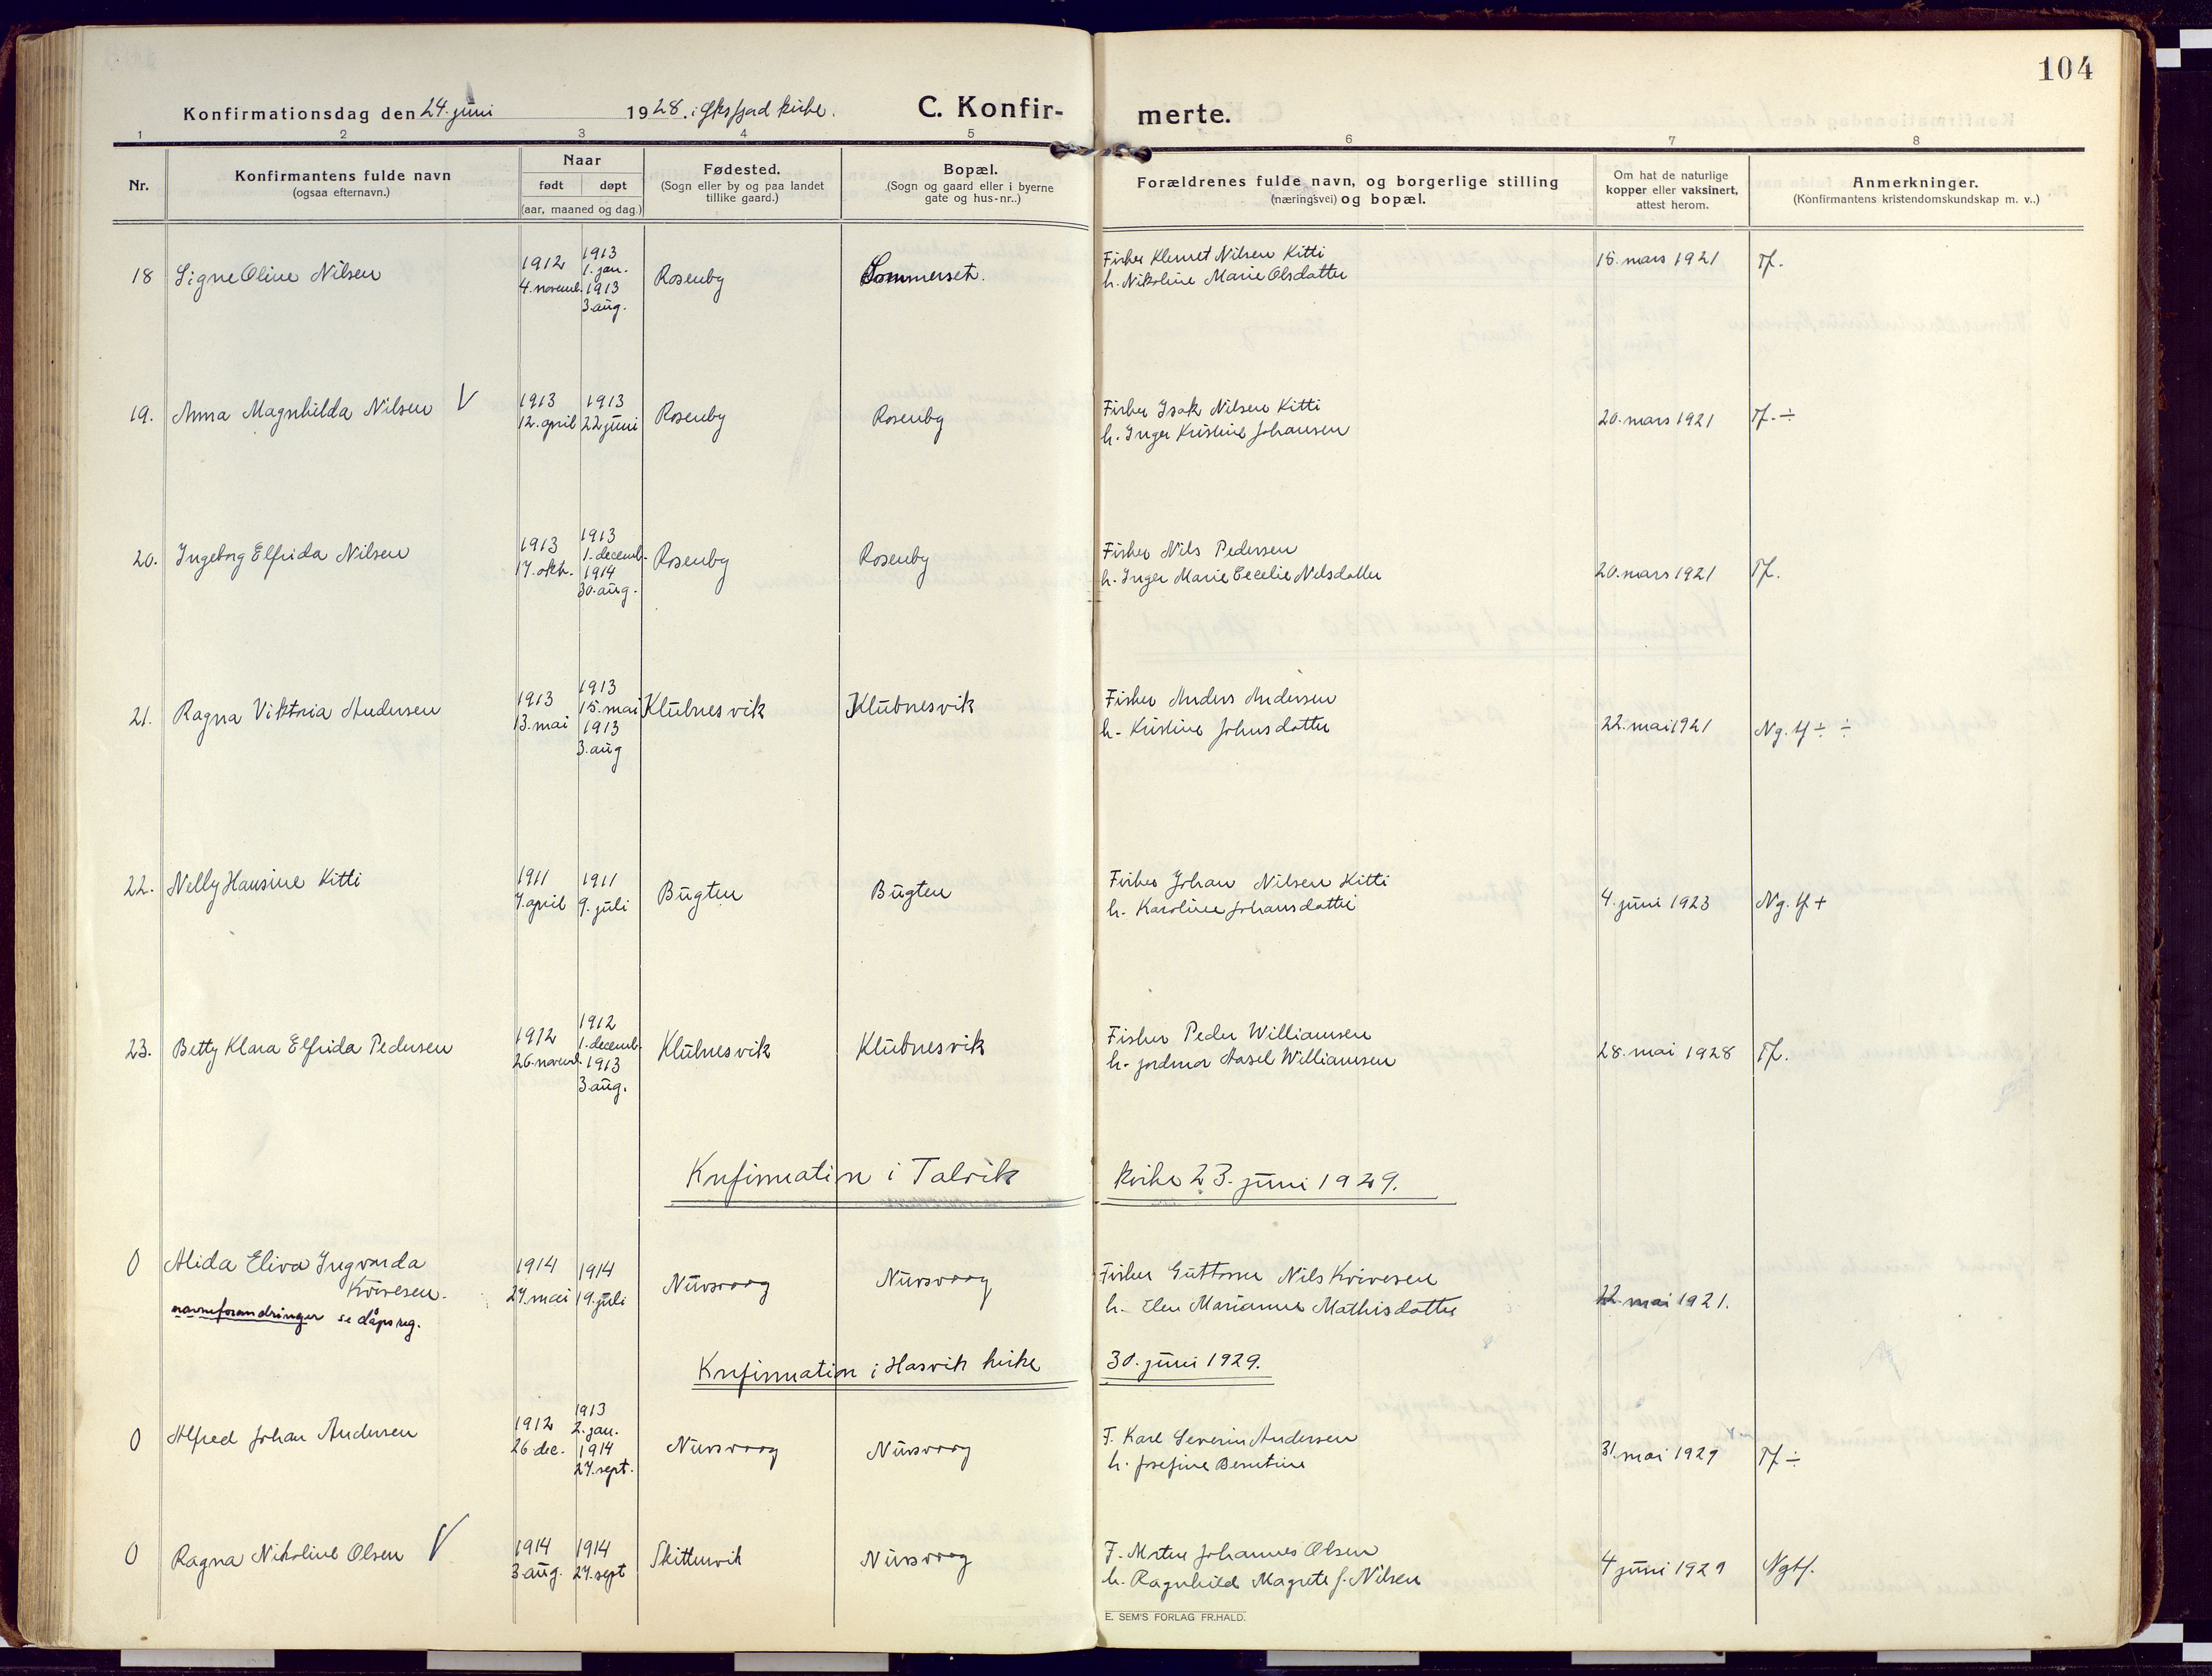 104
Konfirmationsdag den 24. juni 1928. i Øksfjord kirke.
C. Konfir-
merte.
1 2 3 4 5 6 7 8
Nr.
Konfirmantens fulde navn
(ogsaa efternavn.)
Naar
født døpt
(aar, maaned og dag.)
Fødested.
(Sogn eller by og paa landet
tillike gaard.)
Bopæl.
(Sogn og gaard eller i byerne
gate og hus-nr..)
Forældrenes fulde navn, og borgerlige stilling
(næringsvei) og bopæl.
Om hat de naturlige
kopper eller vaksinert,
attest herom.
Anmerkninger.
(Konfirmantens kristendomskundskap m. v..)
18 Signe Oline Nilsen
1912
4. novemb.
1913
1. jan.
1913
3. aug.
Rosenby
Sommerset.
Fisker Klemet Nilsen Kitti
h. Nikoline Marie Olsdatter
18. mars 1921
Tf.
19. Anna Magnhilda Nilsen V
1913
12. april
1913
22 juni
Rosenby
Rosenby
Fisker Isak Nilsen Kitti
h. Inger Kristine Johansen
20. mars 1921
Tf. ÷
20. Ingeborg Elfrida Nilsen
1913
17. okt.
1913
1. decemb.
1914
30. aug.
Rosenby
Rosenby
Fisker Nils Pedersen
h. Inger Marie Cecelie Nilsdatter
20. mars 1921
Tf.
21. Ragna Viktoria Andersen
1913
13. mai
1913
15. mai
1913
3. aug
Klubnesvik
Klubnesvik
Fisker Anders Andersen
h. Kristine Johnsdatter
22. mai 1921
Ng. tf ÷ ÷
22. Nelly Hansine Kitti
1911
7. april
1911
9. juli
Bugten
Bugten
Fisker Johan Nilsen Kitti
h. Karoline Johansdatter
4. juni 1923
Ng. tf +
23. Betty Klara Elfrida Pedersen
1912
26. novemb.
1912
1. decemb.
1913
3. aug.
Klubnesvik
Klubnesvik
Fisker Peder Williamsen
h. jordmor Aasel Williamsen
28. mai 1928
Tf.
Konfirmation i Talvik kirke 23. juni 1929.
0 Alida Eliva Ingvarda
Kvivesen.
navneforandringer se dåpsreg.
1914
27. mai
1914
19. juli
Nuvsvaag
Nuvsvaag
Fisker Guttorm Nils Kvivesen
h. Elen Marianne Mathisdatter
22. mai 1921.
Konfirmation i Hasvik kirke 30. juni 1929.
0 Alfred Johan Andersen
1912
26 dec.
1913
2. jan.
1914
27. sept.
Nuvsvaag
Nuvsvaag
F. Karl Severin Andersen
h. Josefine Berntine
31. mai 1929
Tf ÷
0 Ragna Nikoline Olsen V
1914
3 aug.
1914
27. sept
Skittenvik
Nuvsvaag
F. Morten Johannes Olsen
h. Ragnhild Magrete f. Nilsen
4 juni 1929
Ngtf.
E. SEM'S FORLAG FR.HALD.